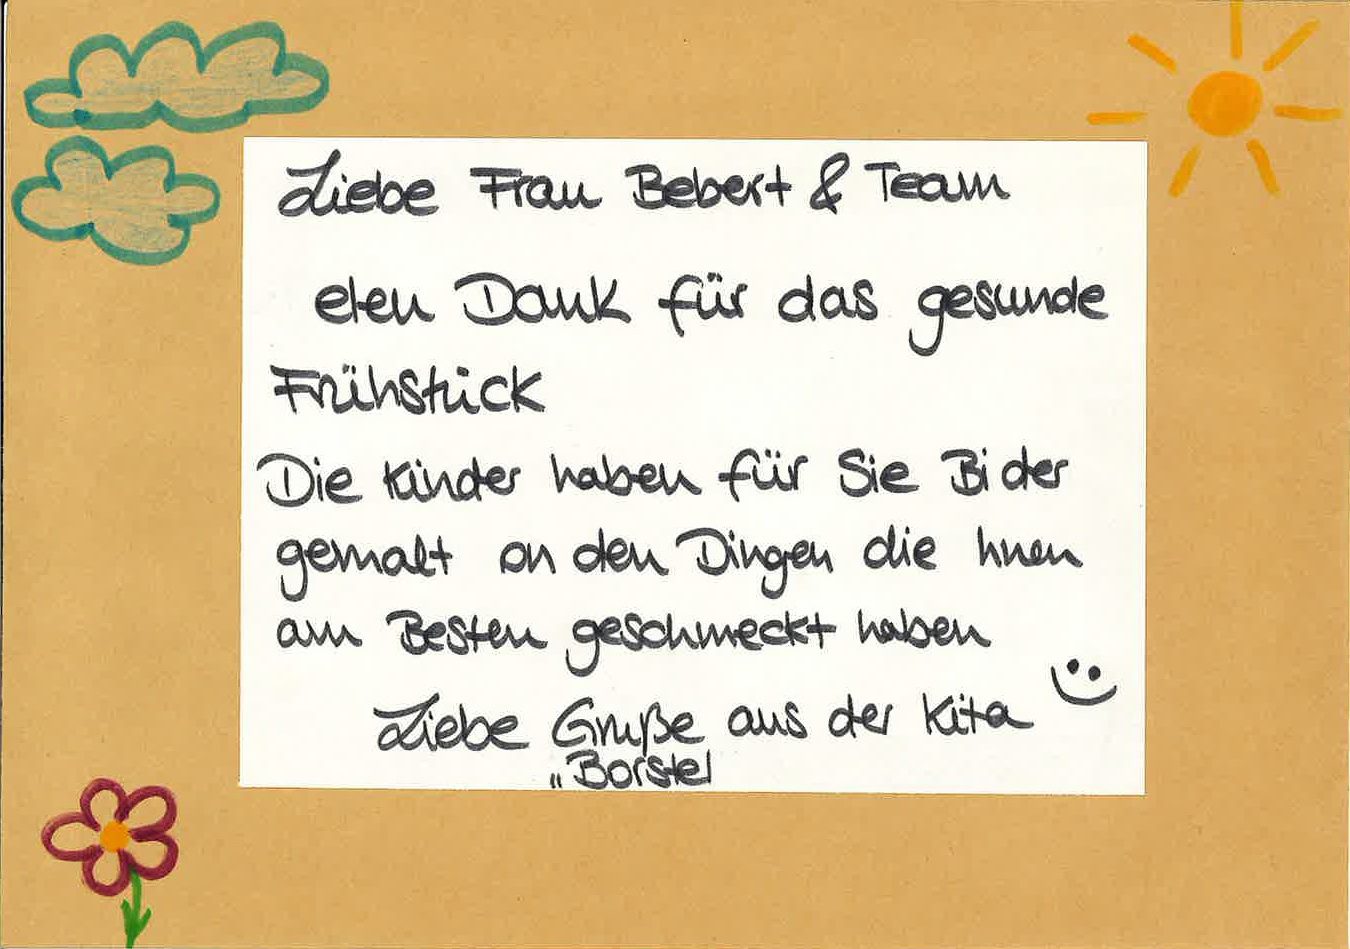 Liebe Frau Bebert & Team
elen Dank für das gesunde
Frühstück
Die Kinder haben für Sie Bi der
gemalt on den Dingen die hnen
am Besten geschmeckt haben
Liebe Gruße aus der Kita
„Borstel